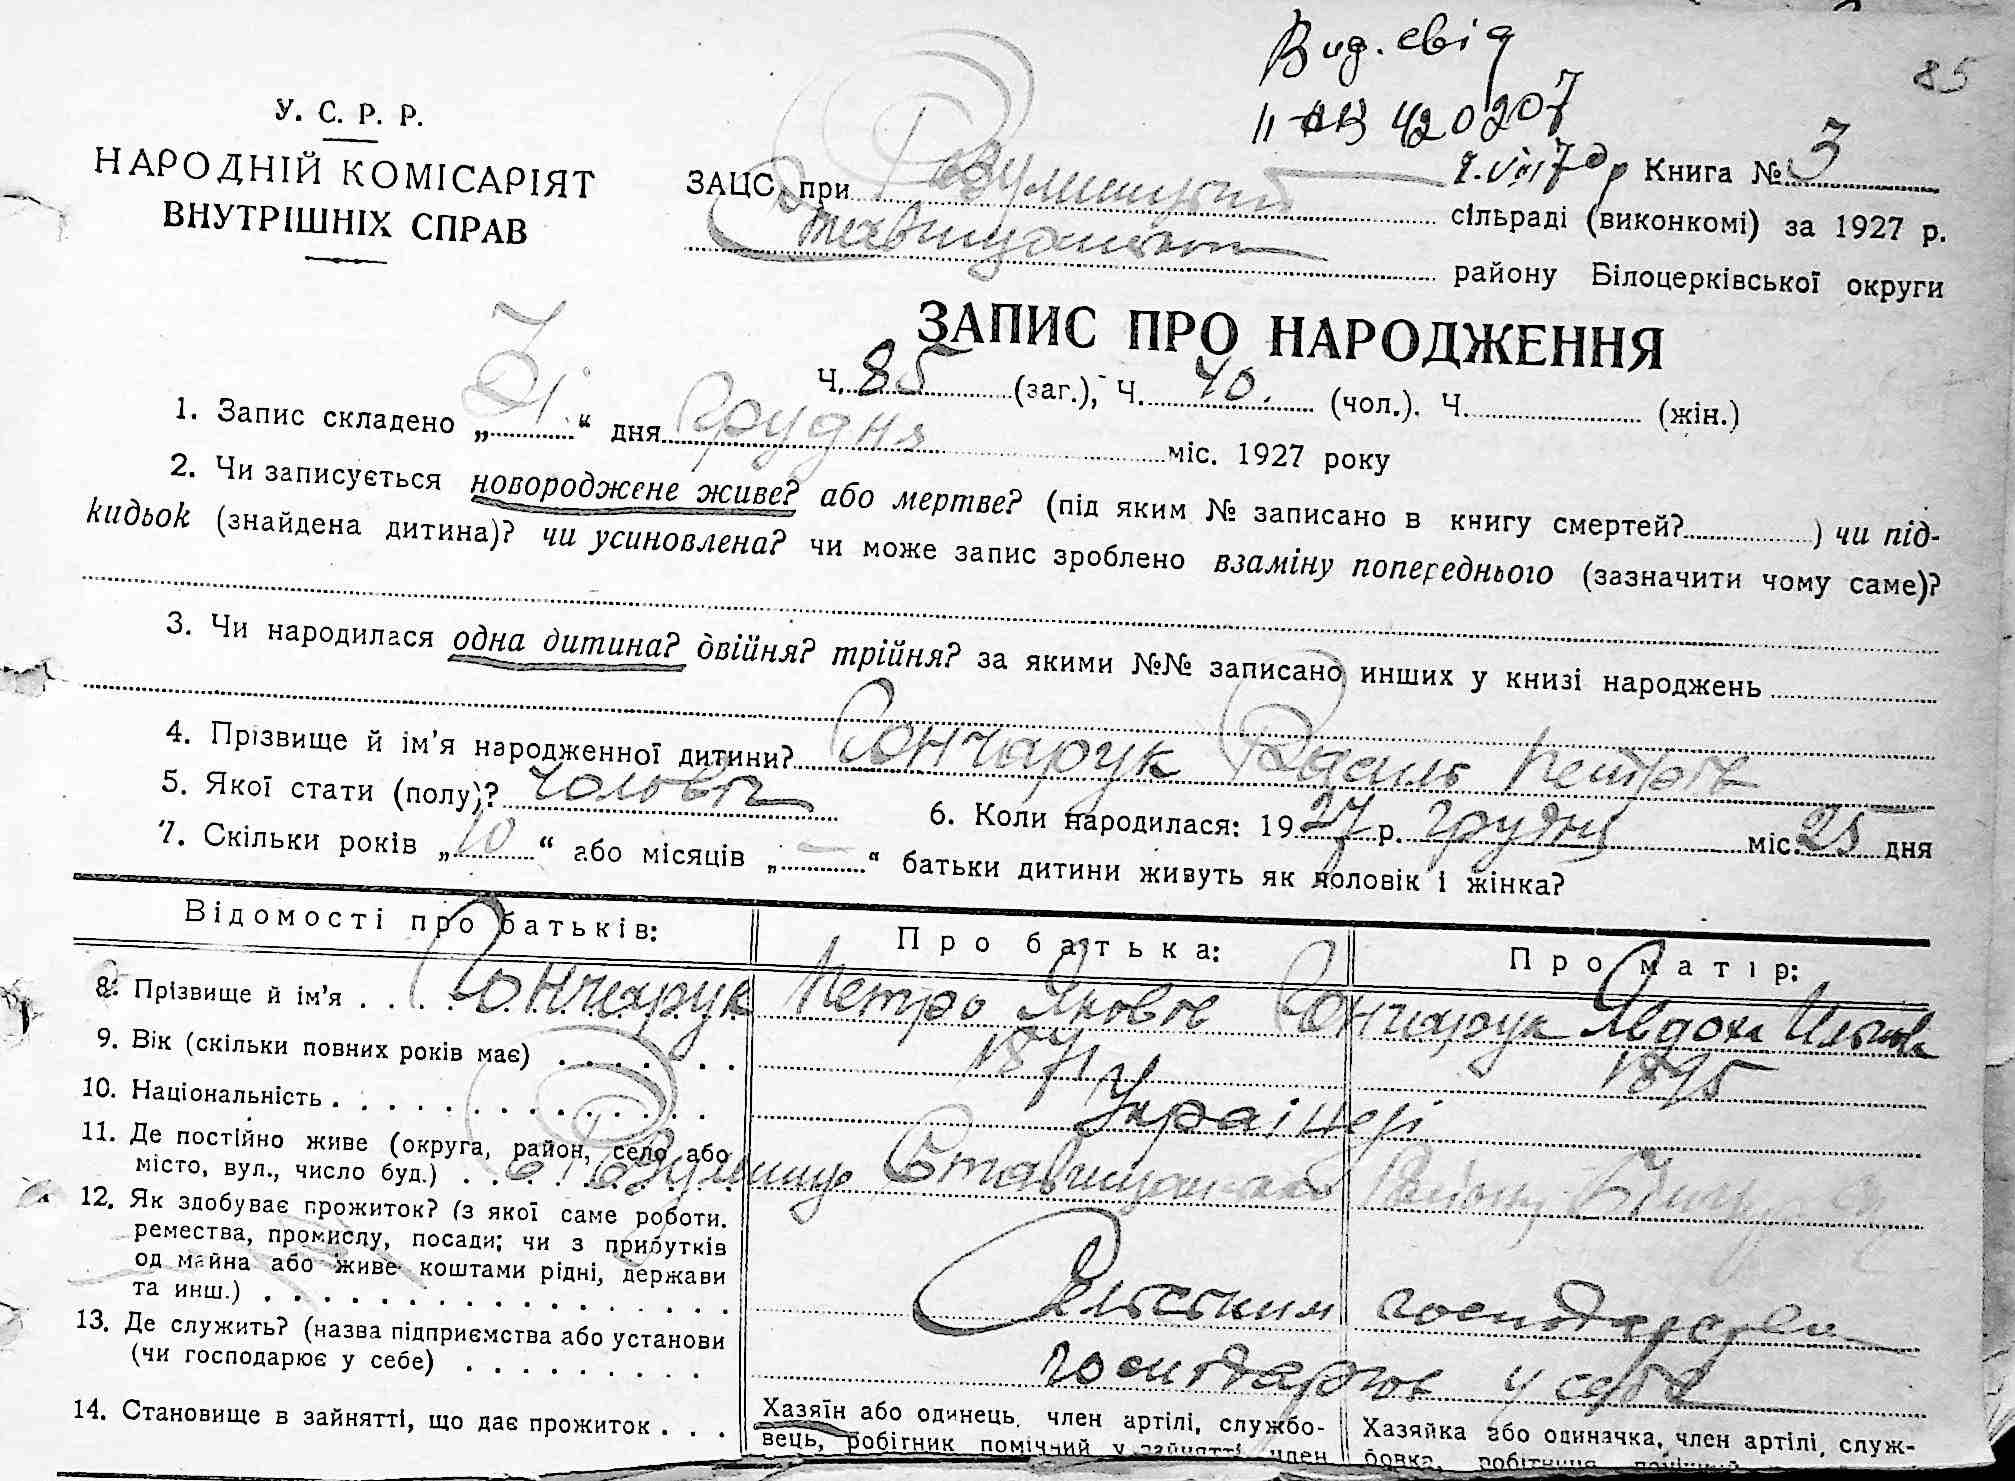 Вид. свід
85
II 420207
У. С. Р. Р.
НАРОДНІЙ КОМІСАРІЯТ
ВНУТРІШНІХ СПРАВ
Книга № 3
ЗАЦС при Розумницкій сільраді (виконкомі) за 1927 р.
Ставищанськ району Білоцерківської округи
ЗАПИС ПРО НАРОДЖЕННЯ
Ч. 85 (заг.), Ч. 40. (чол.). Ч. (жін.)
1. Запис складено „31“ дня Грудня міс. 1927 року
2. Чи записується новороджене живе? або мертве? (під яким № записано в книгу смертей? ) чи під-
кидьок (знайдена дитина)? чи усиновлена? чи може запис зроблено взаміну попереднього (зазначити чому саме)?
3. Чи народилася одна дитина? двійня? трійня? за якими №№ записано инших у книзі народжень
4. Прізвище й ім'я народженної дитини? Гончарук Василь Петрів
5. Якої стати (полу)? чоловіч 6. Коли народилася: 1927 р. грудня міс. 25 дня
7. Скільки років „10“ або місяців „—“ батьки дитини живуть як чоловік і жінка?
Відомості про батьків: Про батька: Про матір:
8. Прізвище й ім'я . . . . Гончарук Петро Яковів Гончарук Явдоха
9. Вік (скільки повних років має) . . . . . . 1871 1895
10. Національність . . . . . . . . . . . . . . Українці
11. Де постійно живе (округа, район, село або
місто, вул., число буд.) . . с. Розумниці Ставищанськ Району Б.Церкув
12. Як здобуває прожиток? (з якої саме роботи.
ремества, промислу, посади; чи з прибутків
од майна або живе коштами рідні, держави
та инш.) . . . . . . . . . . . . . . . . . Сельським господарством
13. Де служить? (назва підприємства або установи
(чи господарює у себе) . . . . . . . . . господарює у себе
14. Становище в зайнятті, що дає прожиток . . . Хазяїн або одинець, член артілі, службо- Хазяйка або одиначка, член артілі, служ-
вець, робітник помічний у зайнятті член бовка, робітниця